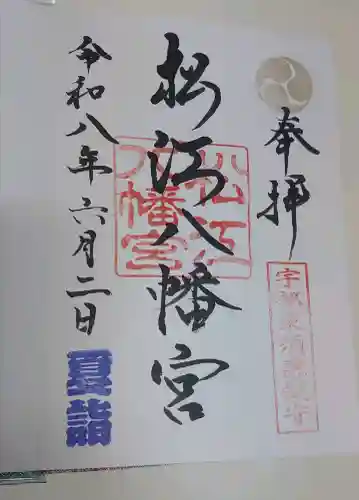 奉拝
宇都
松江八幡宮
松江
八幡宮
令和八年六月二日
夏詣